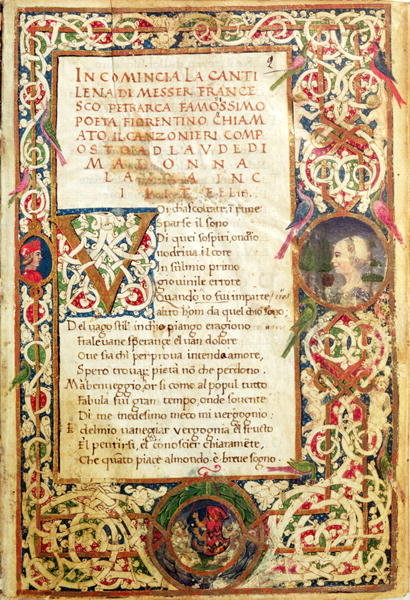 2
INCOMINCIA LA CANTI
LENA DI MESSER FRANCE
SCO PETRARCA FAMOSISSIMO
POETA FIORENTINO CHIAM
ATO IL CANZONIERI COMP
OSTO AD LAVDE DI
MADONNA
LAVRA INC
VOi chascoltate i rime
Sparse il sono
Di quei sospiri, ondio
nodriva il core
In sulmio primo
giovinile errore
Quando io fui imparte
altro hom da quel
Del vago stil' inchio piango eragiono
Fralevane speranze el van dolore
Oue sia chi per prova intenda amore,
Spero trovar pieta non che perdono.
Ma ben veggio, or si come al popul tutto
Fabula fui gram tempo, onde souente
Di me medesimo meco mi vergogno:
E delmio vaneggiar Vergogna el fructo
El pentirsi, el conoscier chiaramēte,
Che quāto piace almondo è breve sogno.